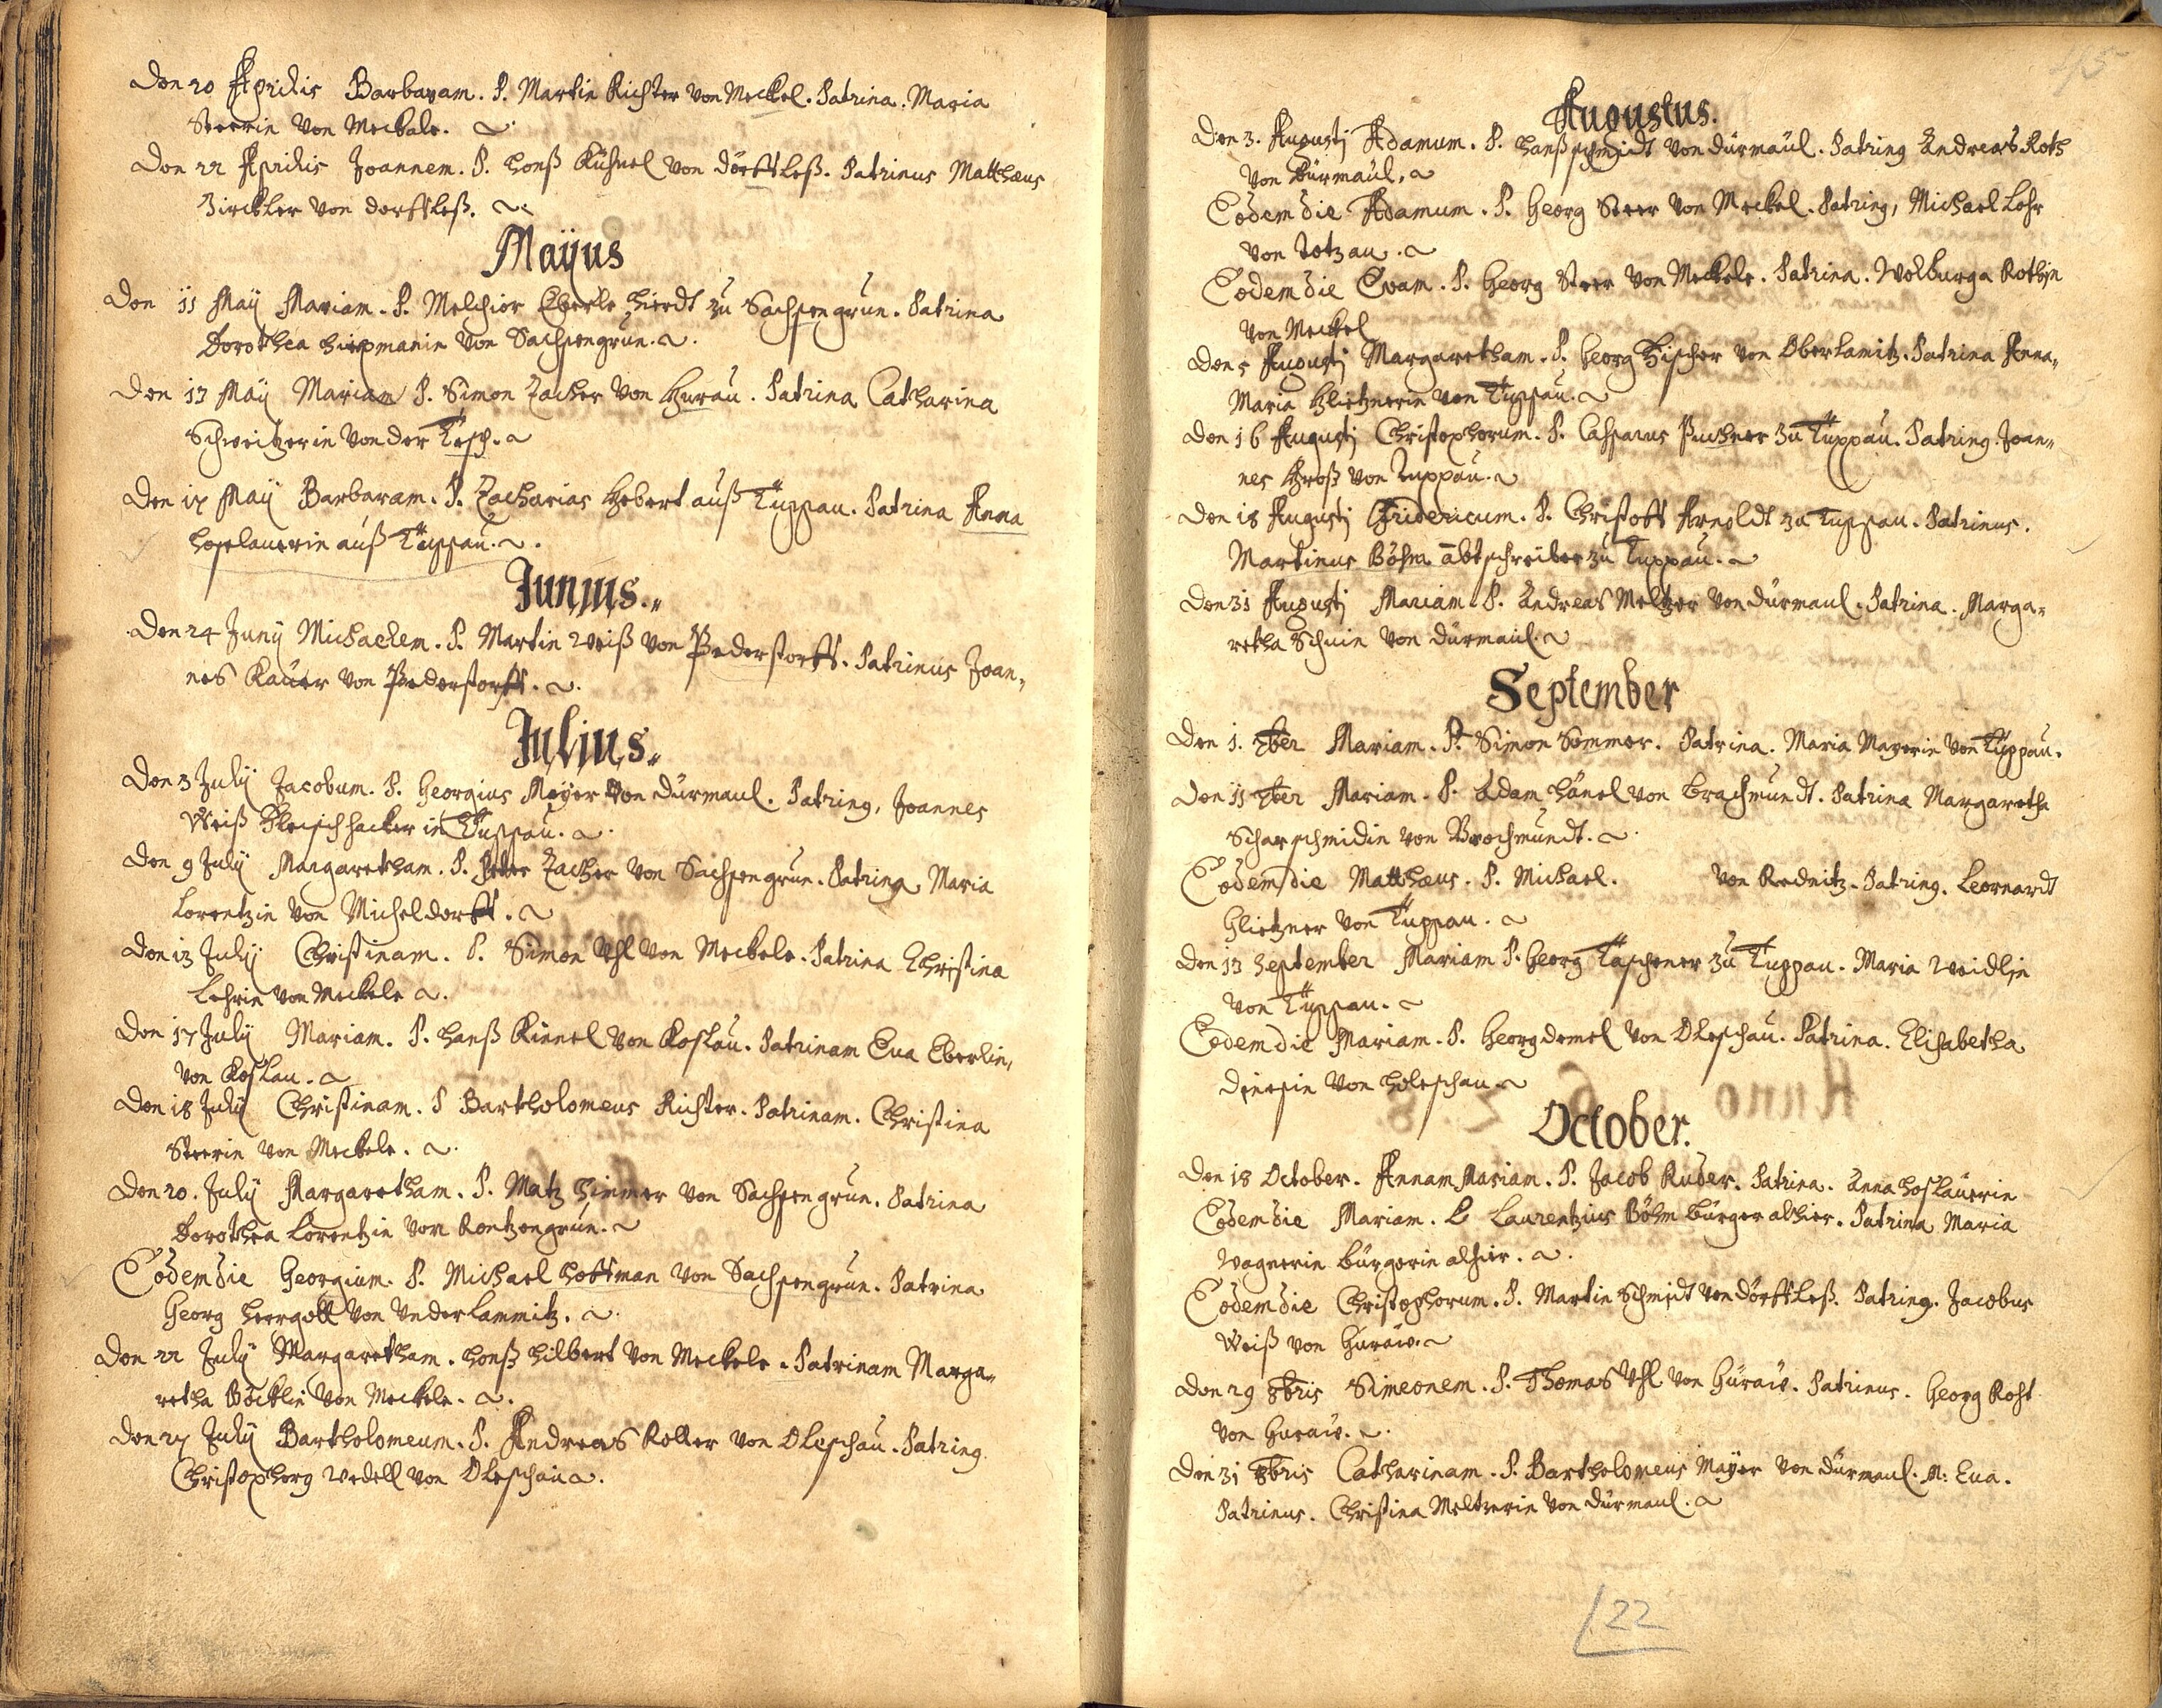 Den 20 Aprilis Barbaram. P. Martin Richter von Meckel. Patrina. Maria
Steerin von Meckele.
Den 22 Aprilis Joannem. P. Honß Kühnel von Dörffleß. Patrinus Matthæus
Zirckler von Dorffleß.
Maÿus
Den 11 Maÿ Mariam. P. Melchior Eberle Hierdt zu Sachsengrün. Patrina
Dorothea von Sachsengrün.
Den 13 Maÿ Mariam P. Simon Zacher von Hurau. Patrina Catharina
Schweitzerin von der Tesch.
Den 17 Maÿ Barbaram. P. Zacharias Hebert auß Tuppau. Patrina Anna
Hoslauerin auß Tuppau.
Junius.
Den 24 Junÿ Michaelem. P. Martin Weiß von Pederstorff. Patrinus Joan„
nes Kauer von Pederstorff.
Julius.
Den 3 Julÿ Jacobum. P. Georgius Meÿer von Dürmaul. Patring, Joannes
Weiß Fleischhacker in Tuppau.
Den 9 Julÿ Margaretham. P. Peter Zacher von Sachsengrün. Patrina Maria
Lorentzin von Micheldorff.
Den 13 Julÿ Christinam. P. Simon Uhl von Meckele. Patrina Christina
Lehrin von Meckele
Den 17 Julÿ Mariam. P. Hanß Kiennel von Koslau. Patrinam Eva Eberlin,
von Koslau.
Den 18 Julÿ Christinam. P Bartholomeus Richter. Patrinam. Christina
Steerin von Meckele.
Den 20. Julÿ Margaretham. P. Matz Himmer von Sachsengrün. Patrina
Dorothea Lorentzin von Rontzengrün.
Eodem die Georgium. P. Michael Hoffman von Sachsengrün. Patrina
Georg Heergott von Underlammitz.
Den 22 Julÿ Margaretham. Honß Hilbert von Meckele. Patrinam Marga„
retha Böcklin von Meckele.
Den 27 Julÿ Bartholomeum. P. Andreas Roller von Oleschau. Patring
Christophorg Wedell von Oleschau
45
Augustus.
Den 3. Augustj Adamum. P. Hanß Schmidt von Dürmaul. Patring Andreas Roth
von Dürmaul.
Eodem die Adamum. P. Georg Steer von Meckel. Patring, Michael Lohr
von Totzau.
Eodem die Evam. P. Georg Steer von Meckele. Patrina. Wolburga Rothin
von Meckel
Den 5 Augustj Margaretham. P. Georg Fischer von Oberlamitz. Patrina Anna„
Maria Glietznerin von Tuppau.
Den 16 Augustj Christophorum. P. Casparus Puchner zu Tuppau. Patring. Joan„
nes Groß von Tuppau.
Den 18 Augustj Fridericum. P. Christoff Arnoldt zu Tuppau. Patrinus.
Martinus Böhm schreiber zu Tuppau.
Den 31 Augustj Mariam. P. Andreas Meltzer von Dürmaul. Patrina. Marga„
retha Schuin von Dürmaul.
September
Den 1. 7ber Mariam. P. Simon Sommer. Patrina. Maria Mayerin von Tuppau.
Den 11 7ber Mariam. P. Adam Hänel von Brachmundt. Patrina Margaretha
Scharschmidin von Brochmundt.
Eodem die Matthæus. P. Michael. von Rednitz. Patring. Leornardt
Glietzner von Tuppau.
Den 13 September Mariam P. Georg Taschner zu Tuppau. Maria Weidlin
von Tuppau.
Eodem die Mariam. P. Georg Demel von Oleschau. Patrina. Elisabetha
von Holeschau
October.
Den 18 October. Annam Mariam. P. Jacob Ruder. Patrina. Anna Hoslauerin
Eodem die Mariam. P Laurentzius Böhm burger alhier. Patrina Maria
Wagnerin burgerin alhier.
Eodem die Christophorum. P. Martin Schmidt von Dörffleß. Patring. Jacobus
Weiß von Hurau.
Den 29 8bris Simeonem. P. Thomas Uhl von Hurau. Patrinus. Georg Rost
von Hurau.
Den 31 8bris Catharinam. P. Bartholomeus Mayer von Dürmaul. M: Eva.
Patrinus. Christina Meltzerin von Dürmaul.
22